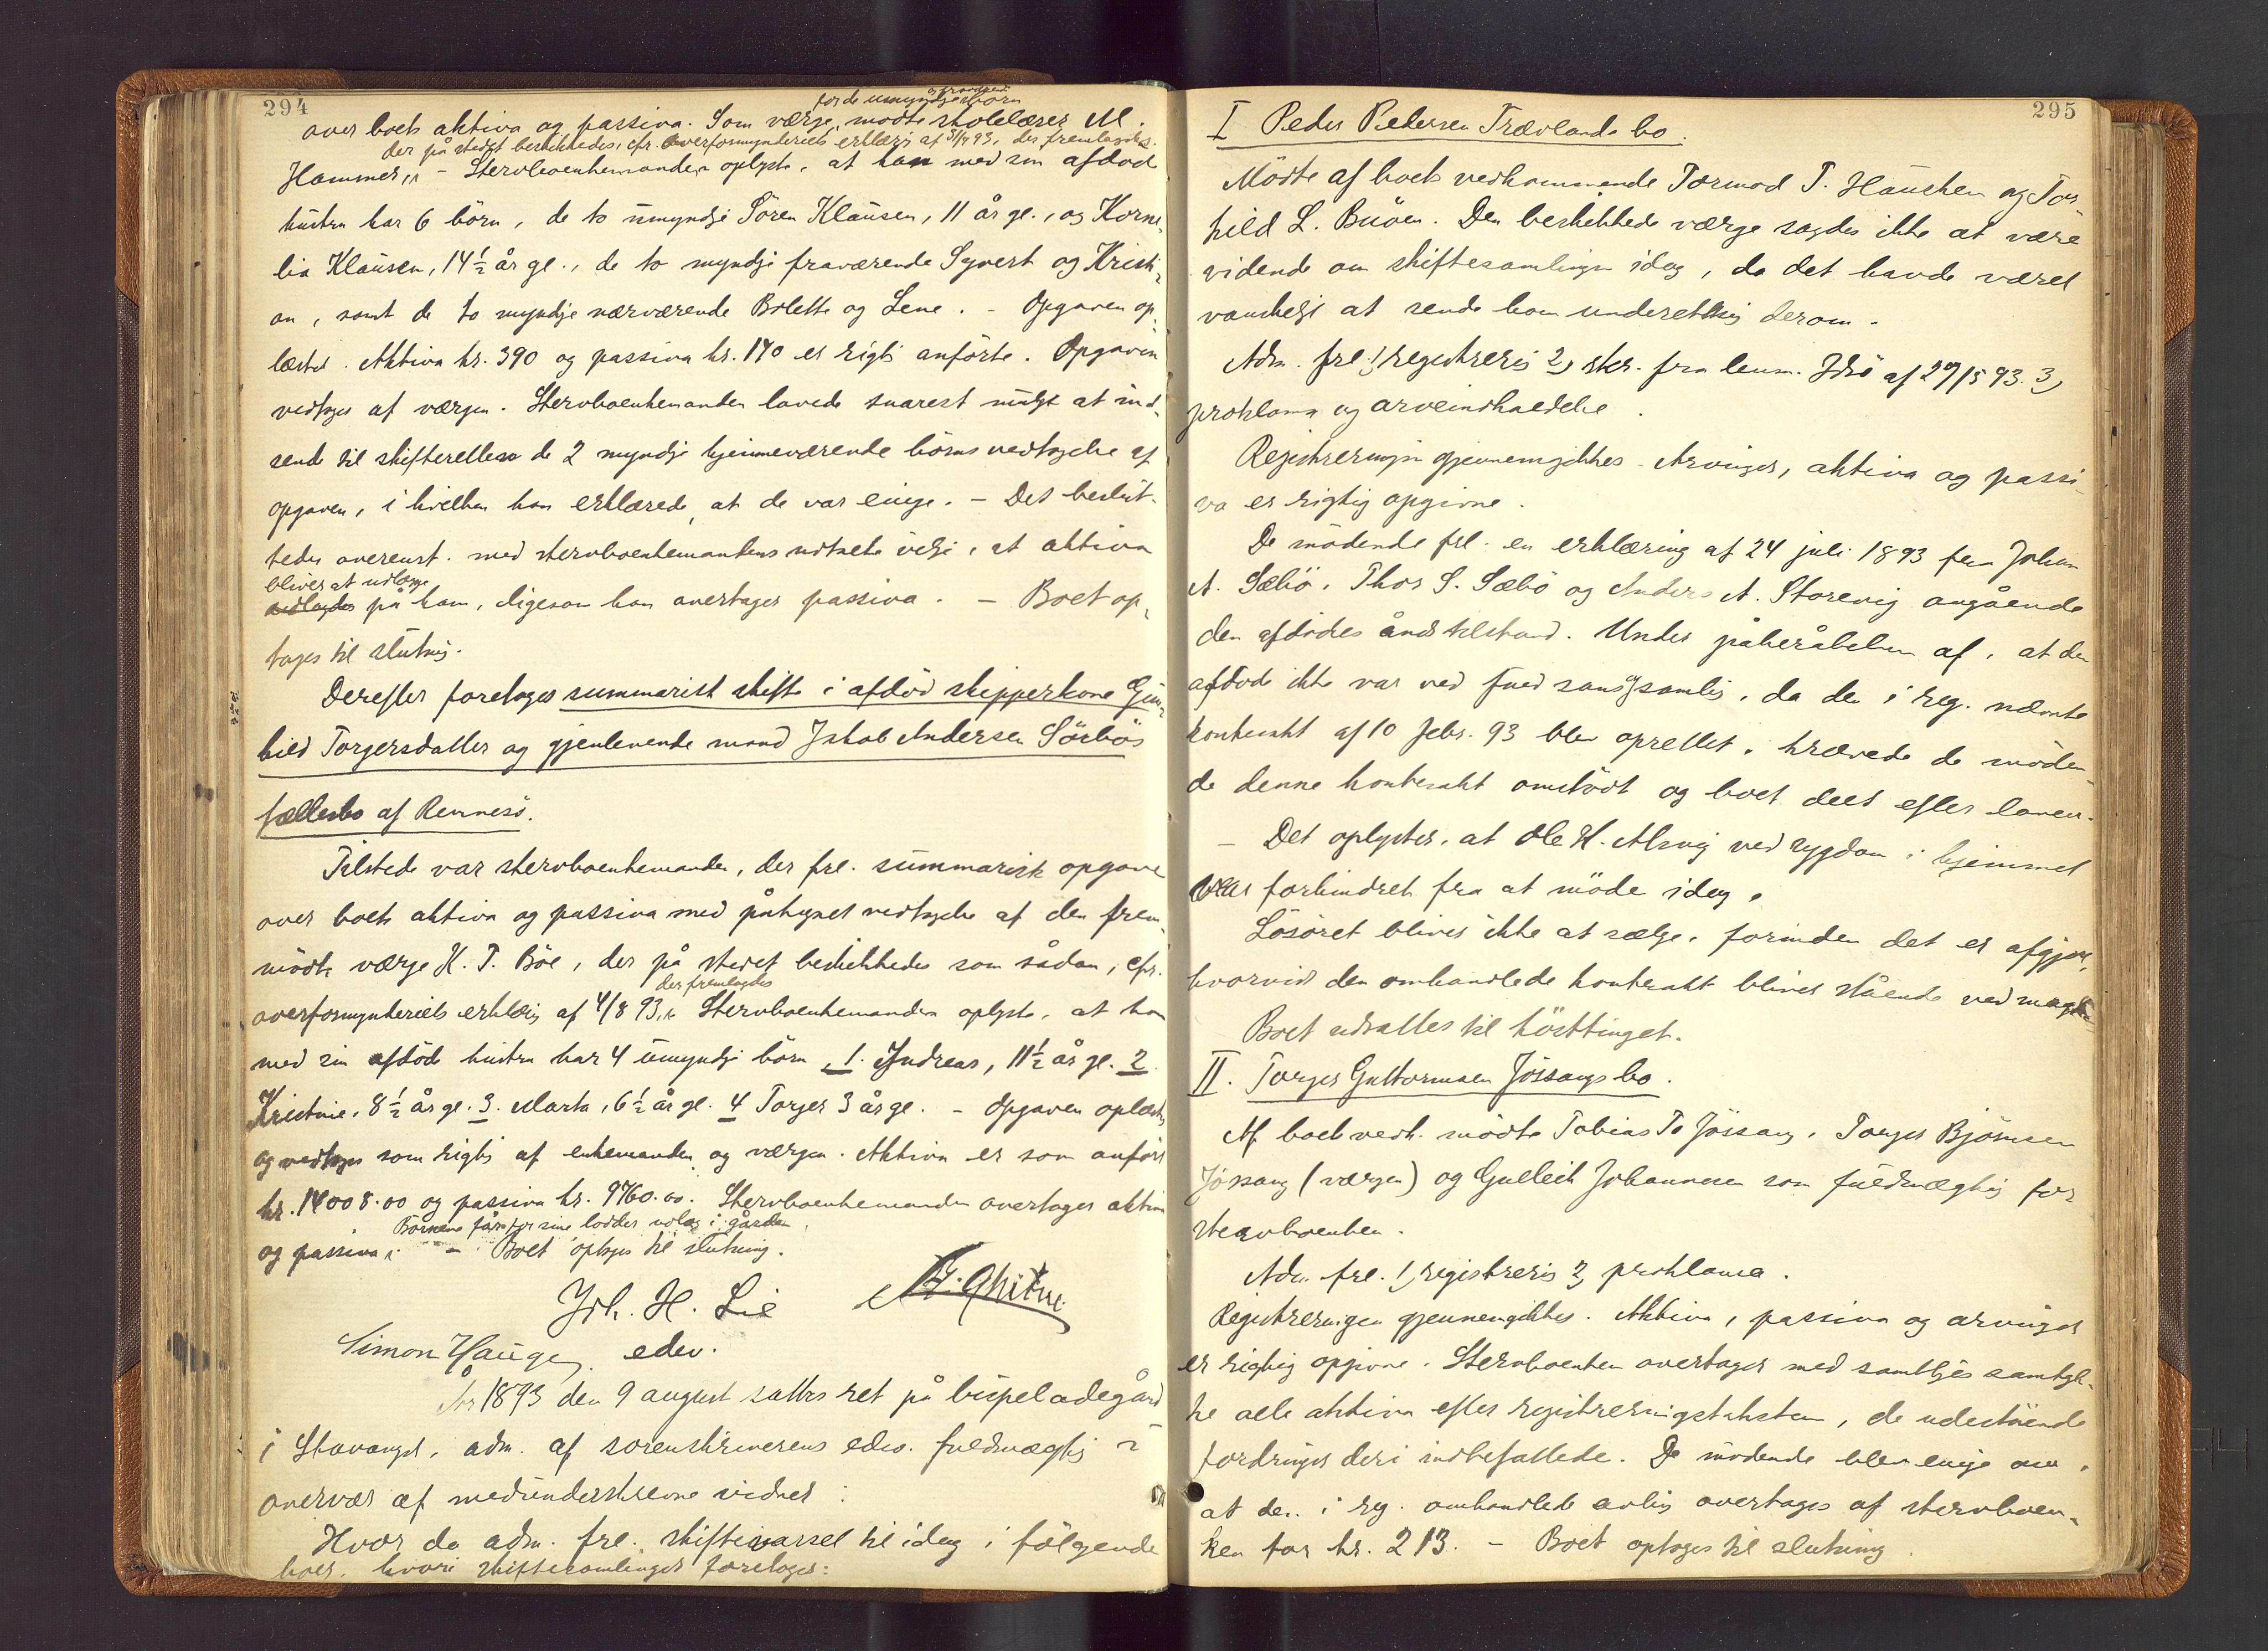 294
for de umyndige børn
over boets aktiva og passiva. Som værge mødte skolelærer M.
der på stedet beskikkedes, cfr. overformynderiets erklærg af 93, der fremlagdes.
Hammer, - Stervboenkemanden oplyste, at han med sin afdøde
hustru har 6 børn, de to umyndige Sören Klausen, 11 år gl., og Korne-
lia Klausen, 14½ år gl., de to myndige fraværende Syvert og Kristi-
an, samt de to myndige nærværende Bolette og Lene. - Opgaven op-
læstes. Aktiva kr. 390 og passiva kr. 140 er rigtig anförte. Opgaven
vedtoges af værgen. Stervboenkemanden lovede snarest muligt at ind-
sende til skifteretten de 2 myndige hjemmeværende börns vedtagelse af
opgaven, i hvilken han erklærede, at de var enige. - Det beslut-
tedes overenst. med stervboenkemandens udtalte vilje, at aktiva
bliver at udlægge
på ham, ligesom han overtager passiva. - Boet op-
tages til slutnig.
Derefter foretoges summarisk skifte i afdöd skipperkone Gun-
hild Torgersdatter og gjenlevende mand Jakob Andersen Sörbös
fællesbo af Rennesö.
Tilstede var stervboenkemanden, der frl. summarisk opgave
over boets aktiva og passiva med påtegnet vedtagelse af den frem-
mödte værge K. T. Böe, der på stedet beskikkedes som sådan, cfr.
der fremlagdes
overformynderiets erklæig af 4/8 93. Stervboenkemanden oplyste, at han
med sin afdöde hustru har 4 umyndige börn 1. Andreas, 11½ år gl. 2
Kristine, 8½ år gl. 3. Marta, 6½ år gl. 4 Torger 3 år gl. - Opgaven oplæstes
og vedtoges som rigtig af enkemanden og værgen. Aktiva er som anfört
kr. 14008.00 og passiva kr. 9760.00. Stervboenkemanden overtager aktiva
Börnene får for sine lodder udlæg i gården.
og passiva. - Boet optages til slutning.
Joh. H. Lie
Simon Hauge, edsv.
År 1893 den 9 august sattes ret på bispeladegård
i Stavanger, adm. af sorenskriverens edsv. fuldmægtig i
overvær af medunderskrevne vidner:
Hvor da adm. frl. skiftevarsel til idag i fölgende
boer, hvori skiftesamlinger foretoges:
295
I Peder Pedersen Trævlands bo.
Mödte af boets vedkommende Tormod T. Hausken og Tor-
hild L. Buöen. Den beskikkede værge sagdes ikke at være
vidende om skiftesamlingen idag, da det havde været
vanskeligt at sende ham underetning derom.
Adm. frl. 1, registrerig 2, skr. fra lensm. Idsö af 29/5 93. 3,
proklama og arveindkaldelse.
Registreringen gjennemgikkes. Arvinger, aktiva og passi-
va er rigtig opgivne.
De mödende frl. en erklæring af 24 juli 1893 fra Johan
A. Sæbö, Thor S. Sæbö og Anders A. Storevig angående
den afdödes åndstilstand. Under påberåbelsen af, at den
afdöde ikke var ved fuld sans og samlig, da den i reg. nævnte
kontrakt af 10 febr. 93 blev oprettet, krævede de möden-
de denne kontrakt omstödt og boet delt efter loven.
- Det oplystes, at Ole H. Alsvig ved sygdom i hjemmet
var forhindret fra at möde idag.
Lösöret bliver ikke at sælge, forinden det er afgjort,
hvorvidt den omhandlede kontrakt bliver stående ved magt.
Boet udsattes til hösttinget.
II. Torger Guttormsen Jössangs bo.
Af boets vedk. mödte Tobias T. Jössang, Torger Björnsen
Jössang (værgen) og Gulleik Johannesen som fuldmægtig for
stervboenken.
Adm. frl. 1, registrerig 2, proklama.
Registreringen gjennemgikkes. Aktiva, passiva og arvinger
er rigtig opgivne. Stervboenken overtager med samtliges samtyk-
ke alle aktiva efter registreringstaksten, de udestående
fordringer deri indbefattede. De mödende blev enige om,
at den i reg. omhandlede avling overtages af stervboen-
ken for kr. 213. - Boet optages til slutning.